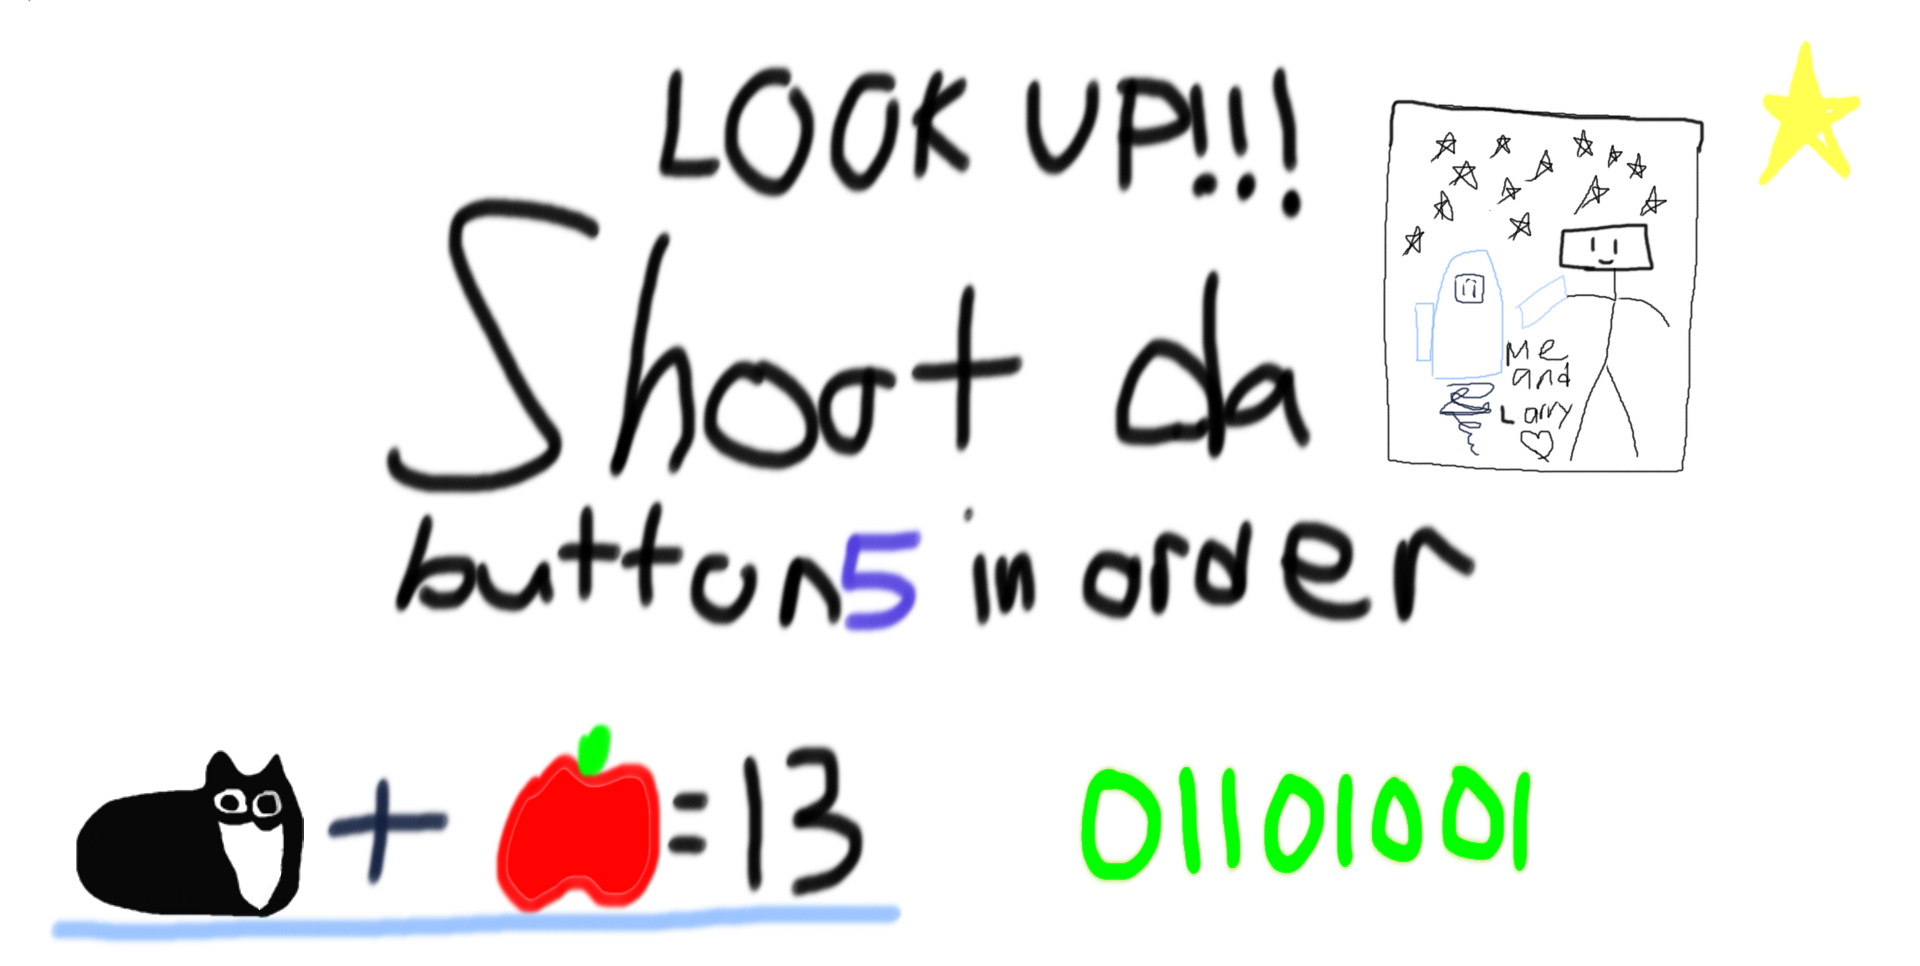 LOOK UP!!!
Shoot da
button5 in order
me
and
Larry
+ = 13
01101001